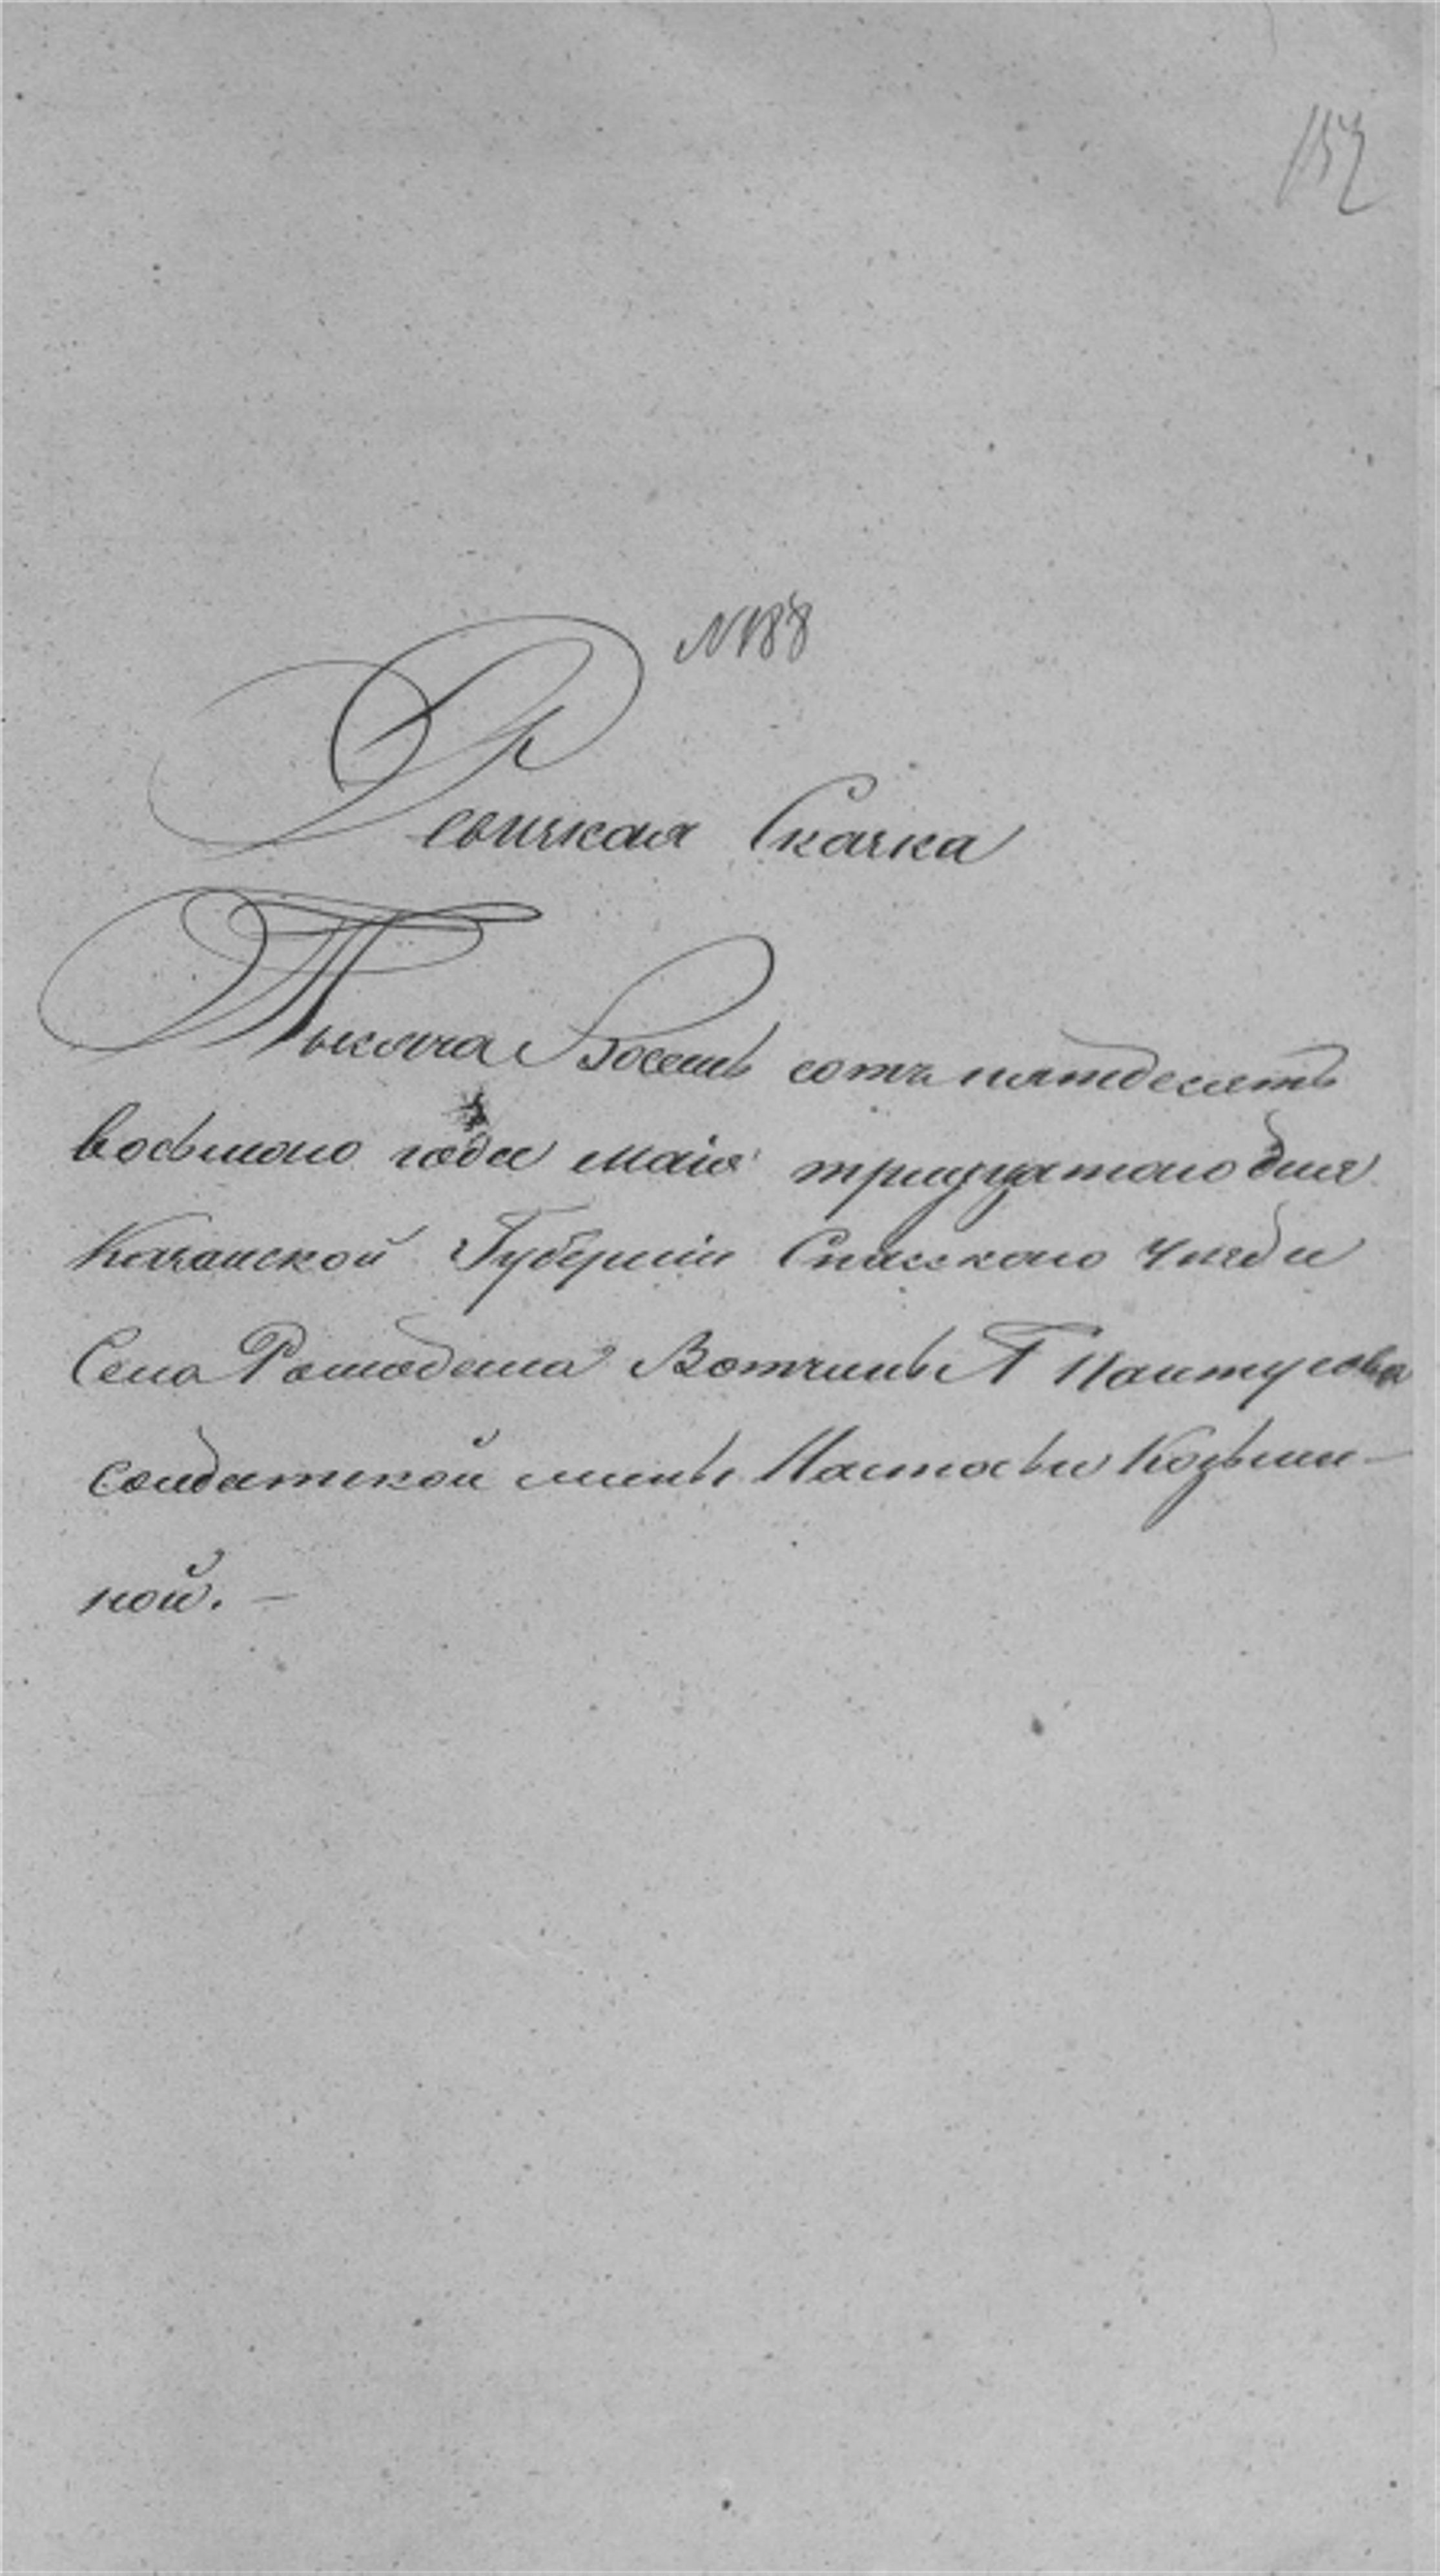 152
№188
Ревизкая Сказка
Тысяча Восемь сотъ пятдесятъ
восьмого года маія тридцатого дня
Казанской Губерніи Спасского уезда
Села Ромодана Вотчины Г Пантусова
солдатской жены Настасьи Козьми-
ной. —